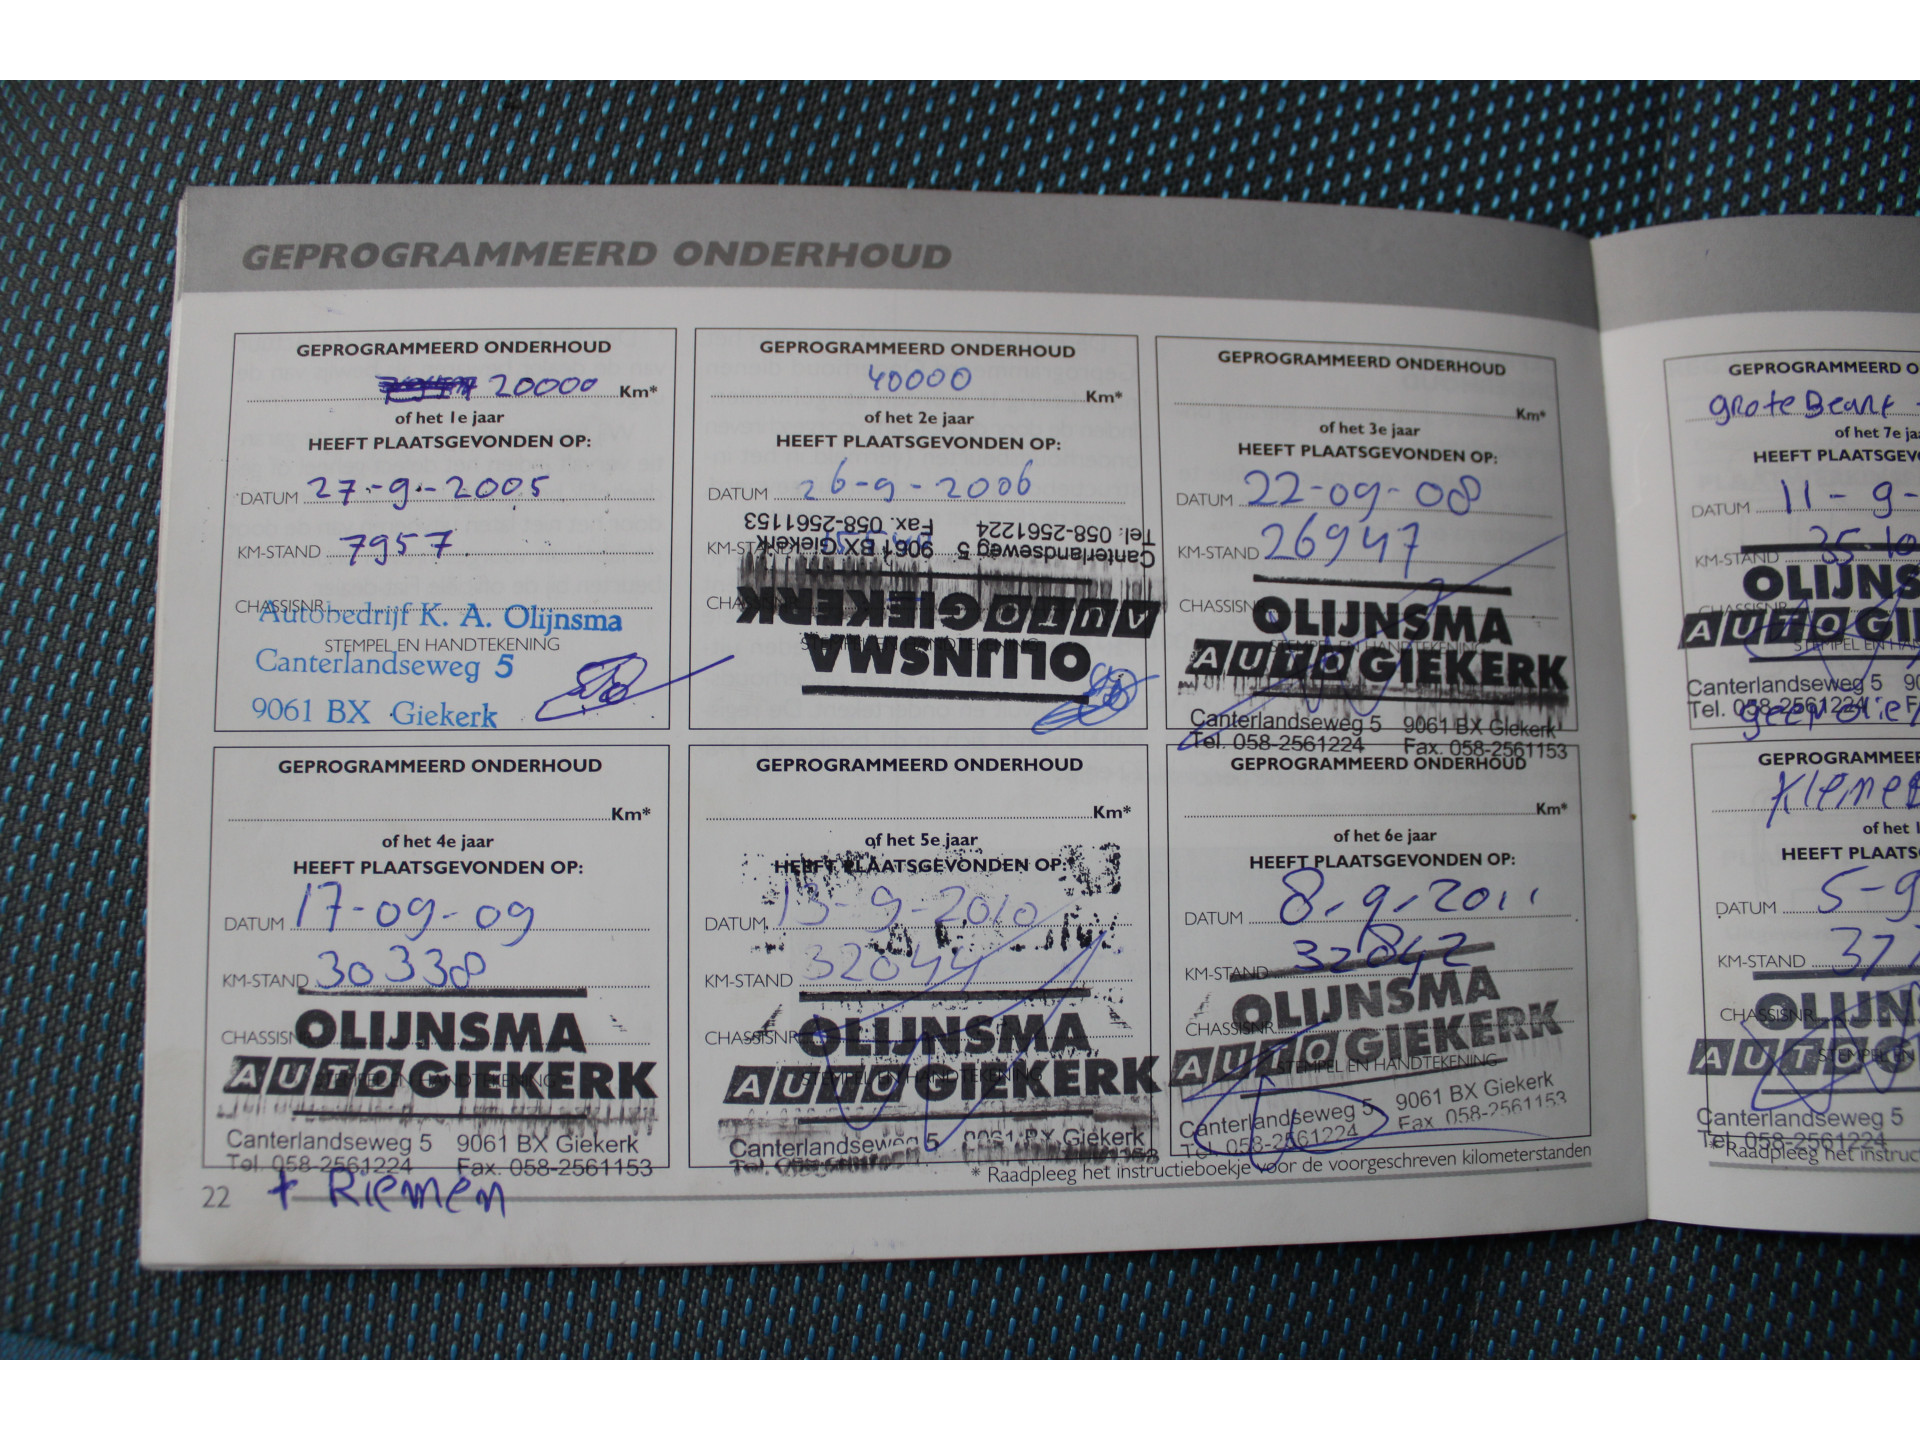 GEPROGRAMMEERD ONDERHOUD
GEPROGRAMMEERD ONDERHOUD
20000 Km*
of het 1e jaar
HEEFT PLAATSGEVONDEN OP:
DATUM 27-9-2005
KM-STAND 7957
CHASSISNR.
Autobedrijf K. A. Olijnsma
STEMPEL EN HANDTEKENING
Canterlandseweg 5
9061 BX Giekerk
GEPROGRAMMEERD ONDERHOUD
40000 Km*
of het 2e jaar
HEEFT PLAATSGEVONDEN OP:
DATUM 26-9-2006
KM-STAND
OLIJNSMA
AUTO GIEKERK
Canterlandseweg 5 9061 BX Giekerk
Tel. 058-2561224 Fax. 058-2561153
STEMPEL EN HANDTEKENING
GEPROGRAMMEERD ONDERHOUD
Km*
of het 3e jaar
HEEFT PLAATSGEVONDEN OP:
DATUM 22-09-08
KM-STAND 26947
CHASSISNR
OLIJNSMA
STEMPEL EN HANDTEKENING
AUTO GIEKERK
Canterlandseweg 5 9061 BX Giekerk
Tel. 058-2561224 Fax. 058-2561153
GEPROGRAMMEERD ONDERHOUD
Km*
of het 4e jaar
HEEFT PLAATSGEVONDEN OP:
DATUM 17-09-09
KM-STAND 30338
CHASSISNR
OLIJNSMA
AUTO GIEKERK
STEMPEL EN HANDTEKENING
Canterlandseweg 5 9061 BX Giekerk
Tel. 058-2561224 Fax. 058-2561153
+ Riemen
GEPROGRAMMEERD ONDERHOUD
Km*
of het 5e jaar
HEEFT PLAATSGEVONDEN OP:
DATUM 13-9-2010
KM-STAND 32044
CHASSISNR
OLIJNSMA
AUTO GIEKERK
STEMPEL EN HANDTEKENING
Canterlandseweg 5 9061 BX Giekerk
GEPROGRAMMEERD ONDERHOUD
Km*
of het 6e jaar
HEEFT PLAATSGEVONDEN OP:
DATUM 8-9-2011
KM-STAND 32842
OLIJNSMA
CHASSISNR.
AUTO GIEKERK
STEMPEL EN HANDTEKENING
Canterlandseweg 5 9061 BX Giekerk
Tel. 058-2561224 Fax. 058-2561153
* Raadpleeg het instructieboekje voor de voorgeschreven kilometerstanden
22
GEPROGRAMMEERD O
grote Beurt
of het 7e jaa
HEEFT PLAATSGEV
DATUM 11-9-
KM-STAND 35.10
OLIJNS
AUTO GI
STEMPEL EN HAN
Canterlandseweg 5 90
Tel. 058-2561224 F
GEPROGRAMMEER
Kleine B
of het 1
HEEFT PLAATS
DATUM 5-9
KM-STAND 377
CHASSISNR
OLIJN
AUTO G
STEMPEL EN
Canterlandseweg 5
Tel. 058-2561224
* Raadpleeg het instruct